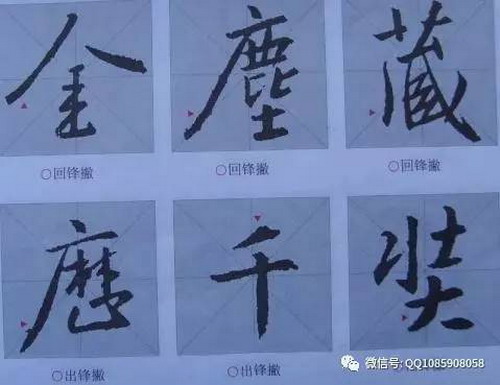 金 塵 藏
○回锋撇 ○回锋撇 ○回锋撇
歷 千 奘
○出锋撇 ○出锋撇
微信号: QQ1085908058